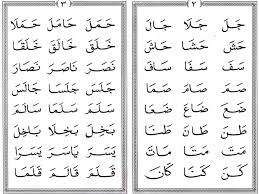 ٢
جَلَ جَلَا جَالَ
حَشَ حَشَا حَاشَ
سَفَ سَفَا سَافَ
صَمَ صَامَ صَمَا
ضَعَ ضَاعَ ضَعَا
طَنَ طَانَ طَنَا
مَتَ مَتَا مَاتَ
كَنَ كَنَا كَانَ
٣
حَمَلَ حَامَلَ حَمَلَا
خَلَقَ خَالَقَ خَلَقَا
نَصَرَ نَاصَرَ نَصَارَ
جَلَسَ جَلَسَا جَالَسَ
سَلَمَ سَلَمَا سَالَمَ
بَخَلَ بَخَلَا بَاخَلَ
يَسَرَ يَاسَرَ يَسَرَا
قَلَمَ قَالَمَ قَلَمَا